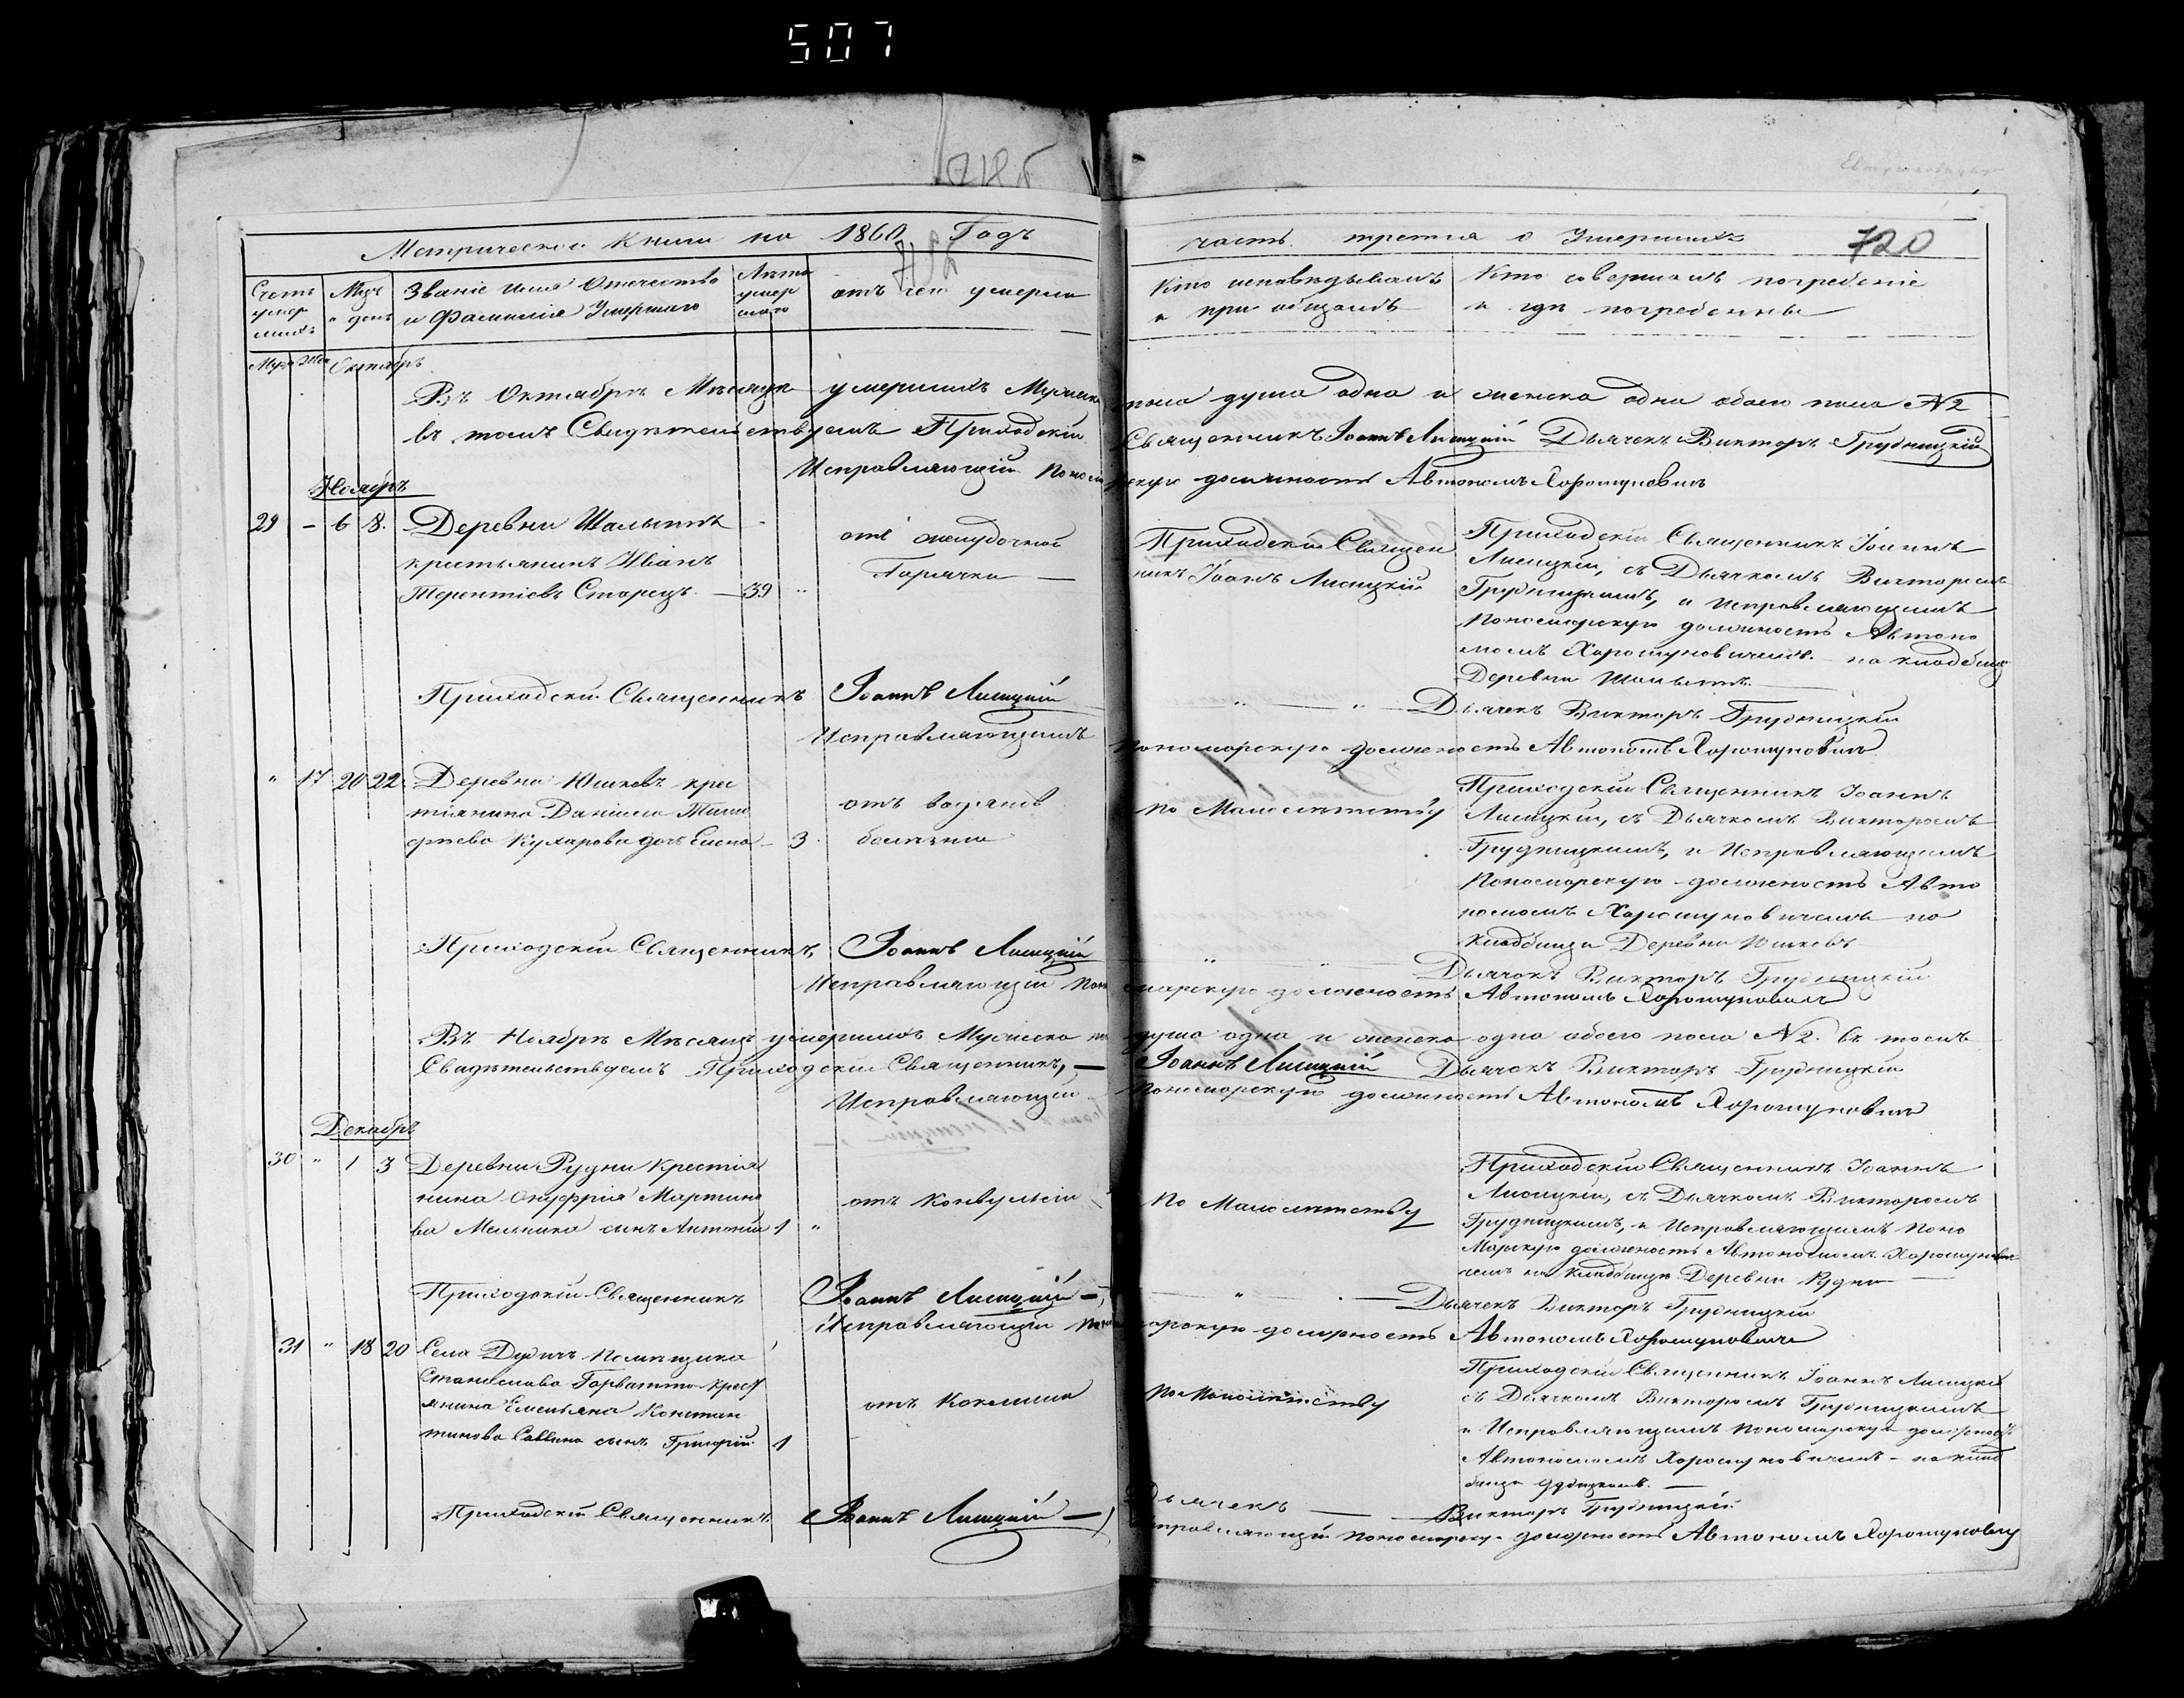 507
Метрической Книги на 1860 Годъ
часть третья о Умершихъ
720
Счетъ умершихъ
Мцъ и день
Званіе имя Отчество и Фамиліа Умершаго
Лета умершаго
отъ чего умерли
Кто исповѣдывалъ и приобщалъ
Кто совершалъ погребеніе и гдѣ погребенны
Октябрь
Въ Октябрѣ Мѣсяцѣ умершихъ Мужеска пола душа одна и женска одна обоего пола N2
въ томъ Свидѣтельствуемъ Приходскій Священникъ Іоаннъ Лисицкій Дьячекъ Викторъ Грудницкій
Исправляющій Пономарскую должность Автономъ Хорошуновичъ
Ноябрь
29 – 6 8. Деревни
крестьянинъ Иванъ
Терентіевъ Старецъ — 39 "
отъ желудочной
Горячки —
Приходскій Священ
никъ Іоанъ Лисицкій
Приходскій Священникъ Іоаннъ
Лисицкій, съ Дьячкомъ Викторомъ
Грудницкимъ, и Исправляющимъ
Пономарскую должность Автоно
момъ Хорошуновичемъ. на кладбищѣ
Деревни
Приходскій Священникъ Іоаннъ Лисицкій
Дьячекъ Викторъ Грудницкій
Исправляющимъ Пономарскую должность Автономъ Хорошуновичъ
" 17 20 22. Деревни Юшковъ крес
тіянина Даніила Тимо
фѣева Кухарева дочъ Елена — 3.
отъ водяной
болѣзни
По Малолѣтству
Приходскій Священникъ Іоаннъ
Лисицкій, съ Дьячкомъ Викторомъ
Грудницкимъ, и Исправляющимъ
Пономарскую должность Авто
номомъ Хорошуновичемъ на
кладбищѣ Деревни Юшковъ
Приходскій Священникъ, Іоаннъ Лисицкій
Дьячокъ Викторъ Грудницкій
Исправляющій Пономарскую должность Автономъ Хорошуновичъ
Въ Ноябрѣ Мѣсяцѣ умершихъ Мужеска по душа одна и женска одна обоего пола N2. въ томъ
Свидѣтельствуемъ Приходскій Священникъ, — Іоаннъ Лисицкій Дьячекъ Викторъ Грудницкій
Исправляющій Пономарскую должность Автономъ Хорошуновичъ
Декабрь
30 " 1 3 Деревни Рудни Крестія
нина Онуфрія Мартино
ва Мельника сынъ Антоній 1 "
отъ Конвульсіи
По Малолѣтству
Приходскій Священникъ Іоаннъ
Лисицкій, съ Дьячкомъ Викторомъ
Грудницкимъ, и Исправляющимъ Поно
Марскую должность Автономомъ Хорошунови
чемъ на кладбищѣ Деревни Рудни —
Приходскій Священникъ Іоаннъ Лисицкій —
Дьячекъ Викторъ Грудницкій
Исправляющій Пономарскую должность Автономъ Хорошуновичъ
31 " 18 20 Села Дудичъ Помѣщика
Станислава Горватта Крест
янина Емельяна Констан
тинова Саввина сынъ Григорій. 1
отъ Коклюша
По Малолѣтству
Приходскій Священникъ Іоаннъ Лисицкій
съ Дьячкомъ Викторомъ Грудницкимъ
и Исправляющимъ Пономарскую должность
Автономомъ Хорошуновичемъ — на клад
бищѣ
Приходскій Священникъ Іоаннъ Лисицкій —
Дьячекъ — Викторъ Грудницкій
Исправляющій Пономарскую должность Автономъ Хорошуновичъ